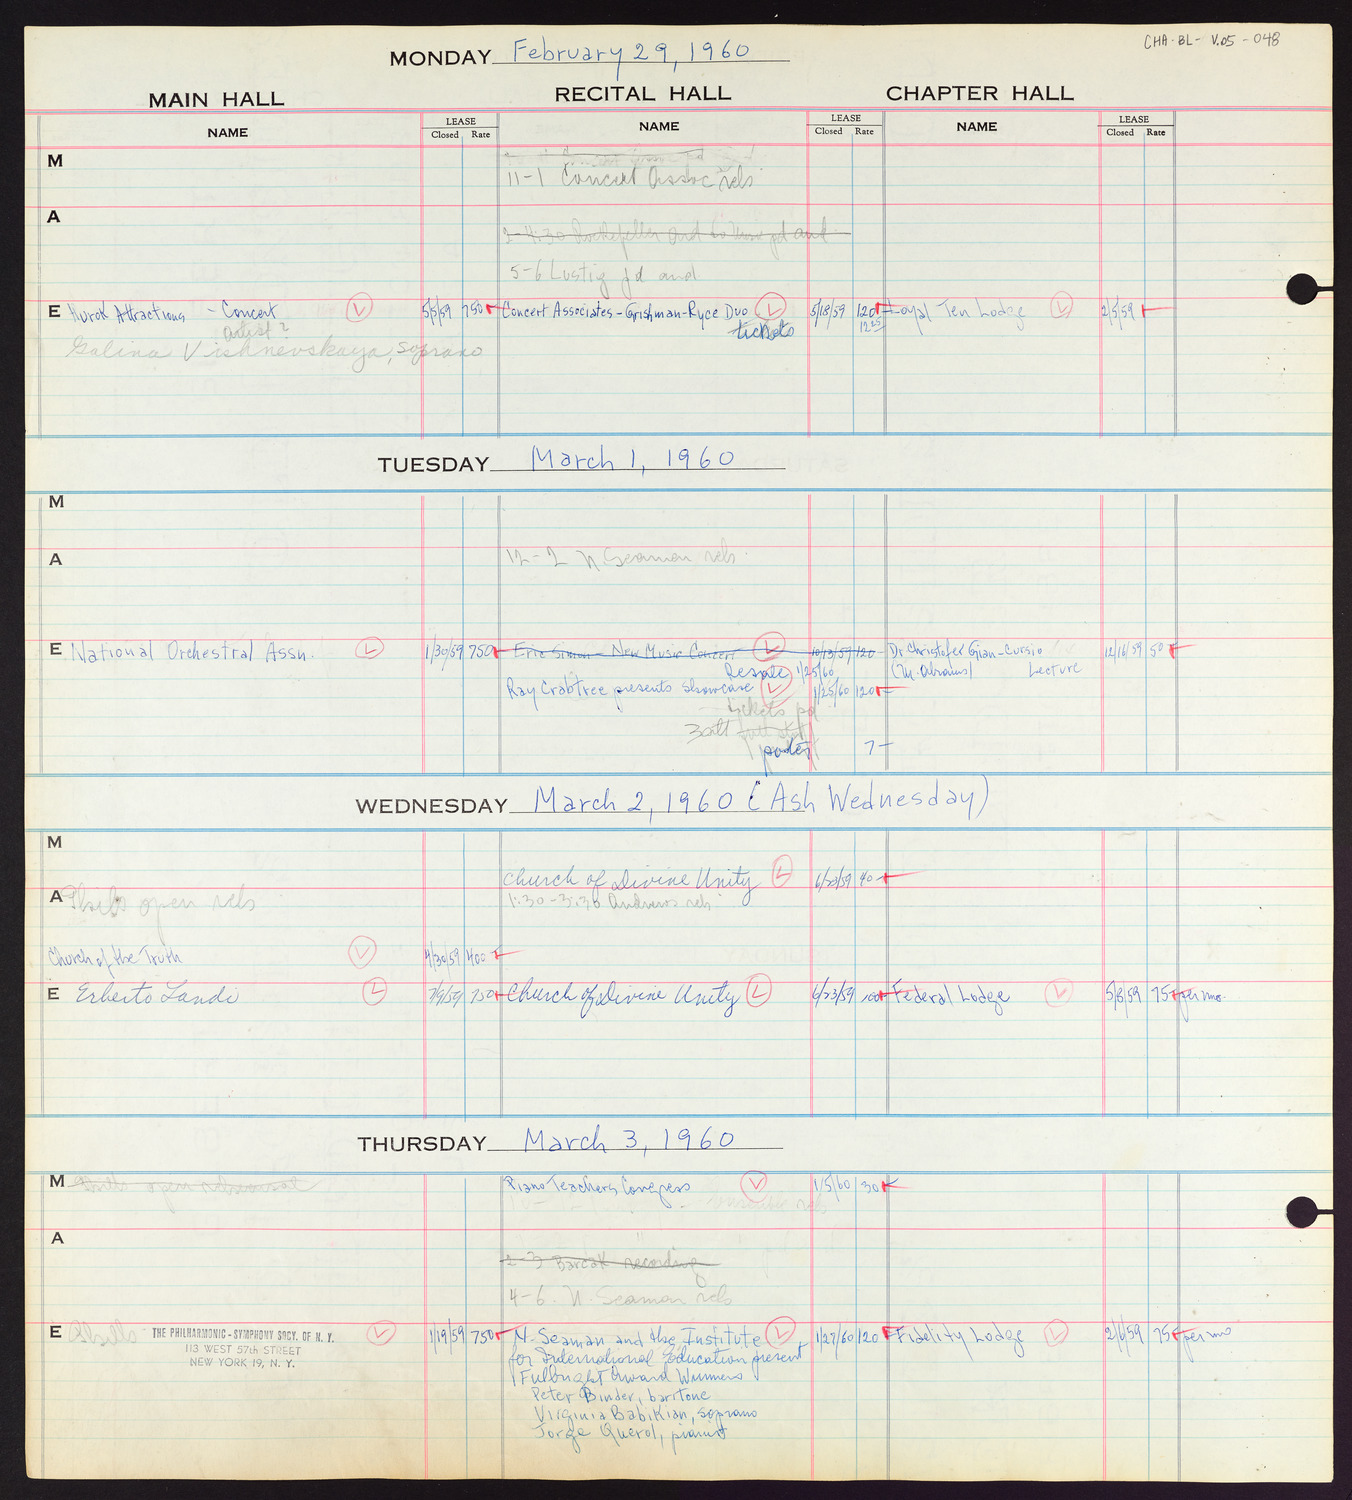 CHA-BL-V.05-048
MONDAY February 29, 1960
MAIN HALL RECITAL HALL CHAPTER HALL
NAME LEASE Closed Rate NAME LEASE Closed Rate NAME LEASE Closed Rate
M
11-1 Concert Assoc rehs
A
2-4:30 Rockefeller and
5-6 Lustig jd and
E Hurok Attractions - Concert L 5/5/59 750 Concert Associates - Grishman-Ryce Duo L 5/18/59 120 Loyal Ten Lodge L 2/5/59
artist? tickets 12.25
Galina Vishnevskaya, soprano
TUESDAY March 1, 1960
M
A 12-2 N. Seaman rehs
E National Orchestral Assn. L 1/30/59 750 Eric Simon - New Music Concert L 10/13/59 120 Dr. Christofer Gian-Cursio 12/16/59 50
Resale 1/25/60 (M. Abrams) Lecture
Ray Crabtree presents Showcase L 1/25/60 120
tickets pd
poster 7-
WEDNESDAY March 2, 1960 (Ash Wednesday)
M
Church of Divine Unity L 6/23/59 40
A Phils open rehs 1:30-3:30 Andrews rehs
Church of the Truth L 4/30/59 400
E Erberto Landi L 7/9/59 750 Church of Divine Unity L 6/23/59 100 Federal Lodge L 5/8/59 75 per mo.
THURSDAY March 3, 1960
M Phils open rehearsal Piano Teachers Congress L 1/5/60 30
A
2-3 Barcak recording
4-6 N. Seaman rehs
E Phils THE PHILHARMONIC-SYMPHONY SOCY. OF N. Y. L 1/19/59 750 N. Seaman and the Institute L 1/27/60 120 Fidelity Lodge L 2/6/59 75 per mo
113 WEST 57th STREET for International Education present
NEW YORK 19, N. Y. Fulbright Award Winners
Peter Binder, baritone
Virginia Babikian, soprano
Jorge Querol, pianist